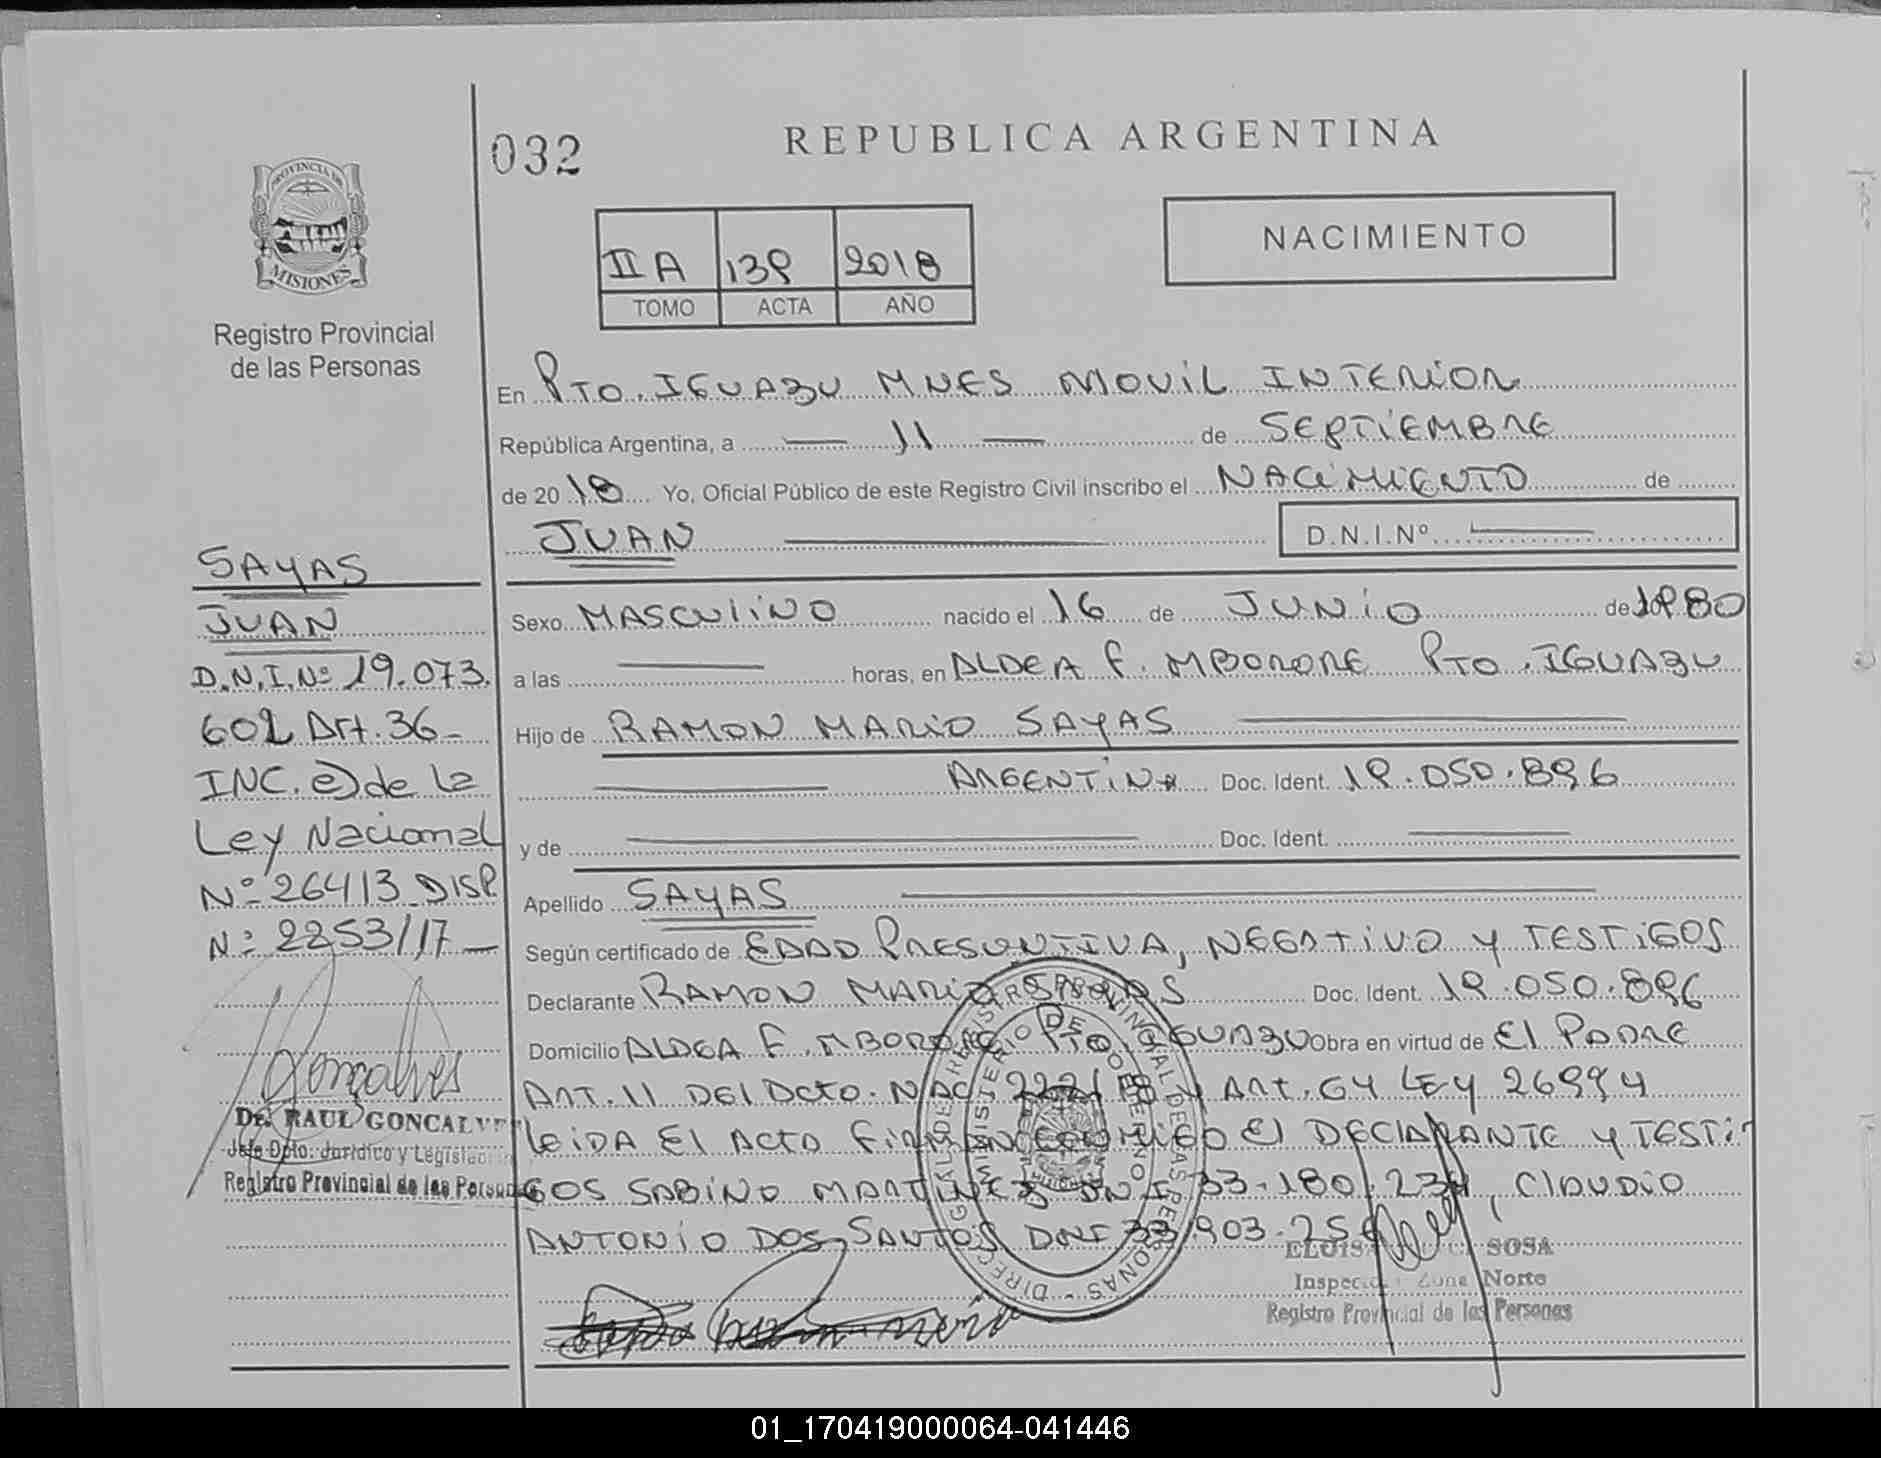 032
REPUBLICA ARGENTINA
PROVINCIA DE
MISIONES
Registro Provincial
de las Personas
II A 139 2018
TOMO ACTA AÑO
NACIMIENTO
En PTO. IGUAZU MNES MOVIL INTERIOR
República Argentina, a — 11 — de SEPTIEMBRE
de 2018 Yo, Oficial Público de este Registro Civil inscribo el NACIMIENTO de
JUAN D.N.I.Nº
Sexo MASCULINO nacido el 16 de JUNIO de 1980
a las — horas, en ALDEA F. MBORORE PTO. IGUAZU
Hijo de RAMON MARIO SAYAS
ARGENTINA Doc. Ident. 19.050.896
y de — Doc. Ident. —
Apellido SAYAS
Según certificado de EDAD PRESUNTIVA, NEGATIVO Y TESTIGOS
Declarante RAMON MARIO SAYAS Doc. Ident. 19.050.896
Domicilio ALDEA F. MBORORE PTO. IGUAZU Obra en virtud de El PADRE
ART. 11 DEL Dcto. NAC. Y ART. 64 LEY 26994
LEIDA El ACTO FIRMAN CONMIGO El DECLARANTE Y TESTI
GOS SABINO MARTINEZ DNI 33.180.234, CLAUDIO
ANTONIO DOS SANTOS DNI 33.903.25
SOSA
Zona Norte
Registro Provincial de las Personas
SAYAS
JUAN
D.N.I.Nº 19.073.
602 Art. 36-
INC. e) de la
Ley Nacional
Nº 26413 DISP.
Nº 2253/17-
Goncalves
Dr. RAUL GONCALVES
Jefe Dpto. Jurídico y Legislación
Registro Provincial de las Personas
01_170419000064-041446